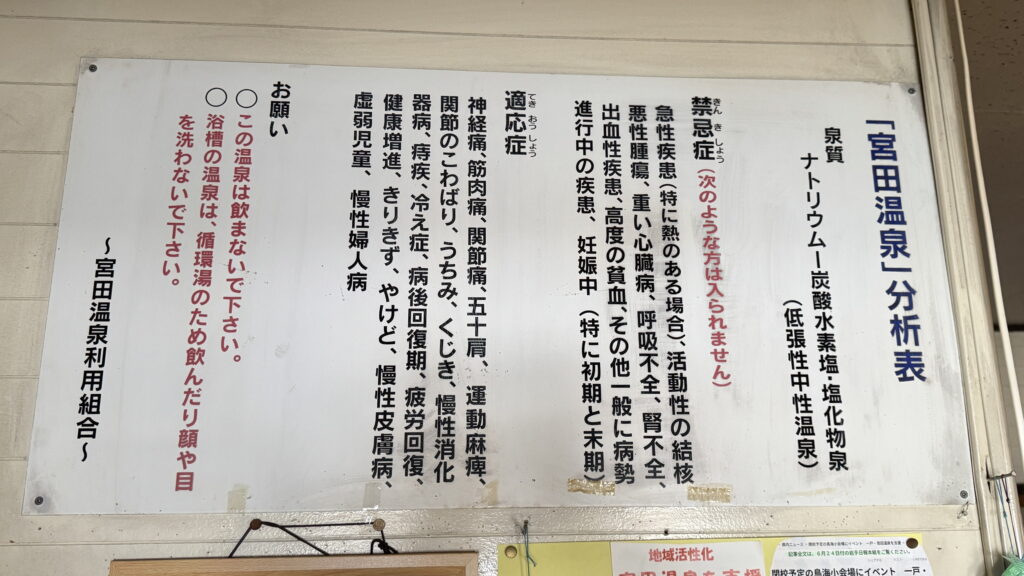 「宮田温泉」分析表
泉質
ナトリウムー炭酸水素塩・塩化物泉
(低張性中性温泉)
禁忌症(次のような方は入られません)
きん き しょう
急性疾患(特に熱のある場合)、活動性の結核
悪性腫瘍、重い心臓病、呼吸不全、腎不全、
出血性疾患、高度の貧血、その他一般に病勢
進行中の疾患、妊娠中(特に初期と末期)
適応症
てき おう しょう
神経痛、筋肉痛、関節痛、五十肩、運動麻痺、
関節のこわばり、うちみ、くじき、慢性消化
器病、痔疾、冷え症、病後回復期、疲労回復、
健康増進、きりきず、やけど、慢性皮膚病、
虚弱児童、慢性婦人病
お願い
○この温泉は飲まないで下さい。
○浴槽の温泉は、循環湯のため飲んだり顔や目
を洗わないで下さい。
~宮田温泉利用組合~
地域活性化
宮田温泉を支援
記事全文は、6月24日付の岩手日報本紙をご覧ください。
閉校予定の鳥海小会場にイベント 一戸・